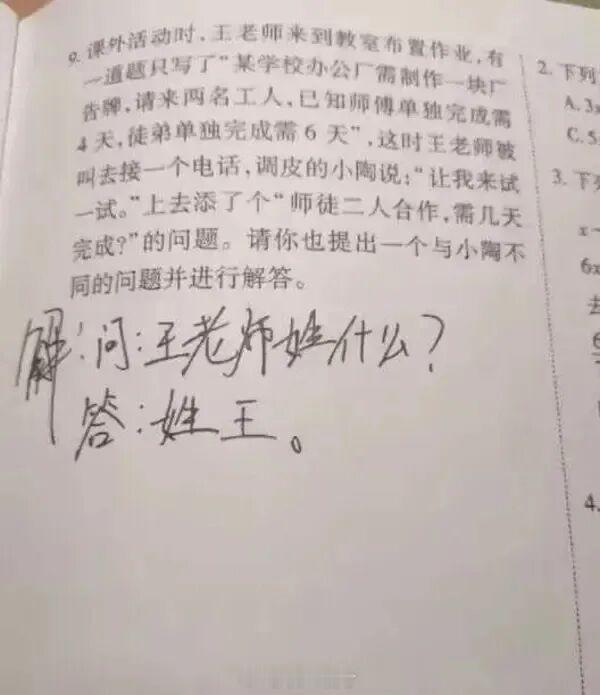 9. 课外活动时，王老师来到教室布置作业，有
一道题只写了“某学校办公厂需制作一块广
告牌，请来两名工人，已知师傅单独完成需
4 天，徒弟单独完成需 6 天”，这时王老师被
叫去接一个电话，调皮的小陶说：“让我来试
一试。”上去添了个“师徒二人合作，需几天
完成？”的问题。请你也提出一个与小陶不
同的问题并进行解答。
解：问：王老师姓什么？
答：姓王。
2. 下列
A. 3x
C. 5
3. 下列
x
6x
去
6
4.